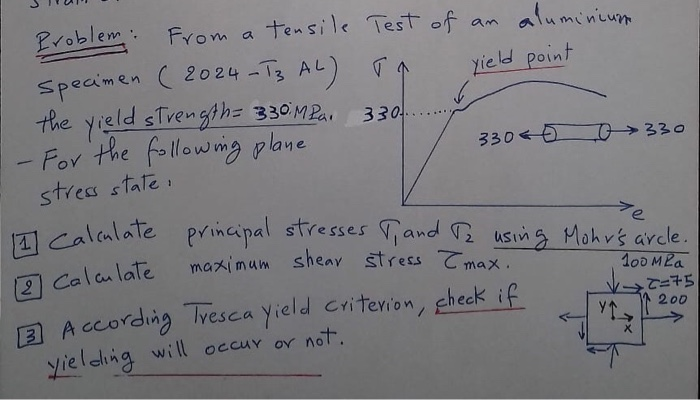 Problem: From a tensile Test of an aluminium
specimen ( 2024 -T3 AL)
the yield strength= 330 MPa.
- For the following plane
stress state:
σ
yield point
330
330
330
e
1 Calculate principal stresses σ1 and σ2 using Mohr's circle.
2 Calculate maximum shear stress τmax.
3 According Tresca yield criterion, check if
yielding will occur or not.
100 MPa
τ=75
200
y
x